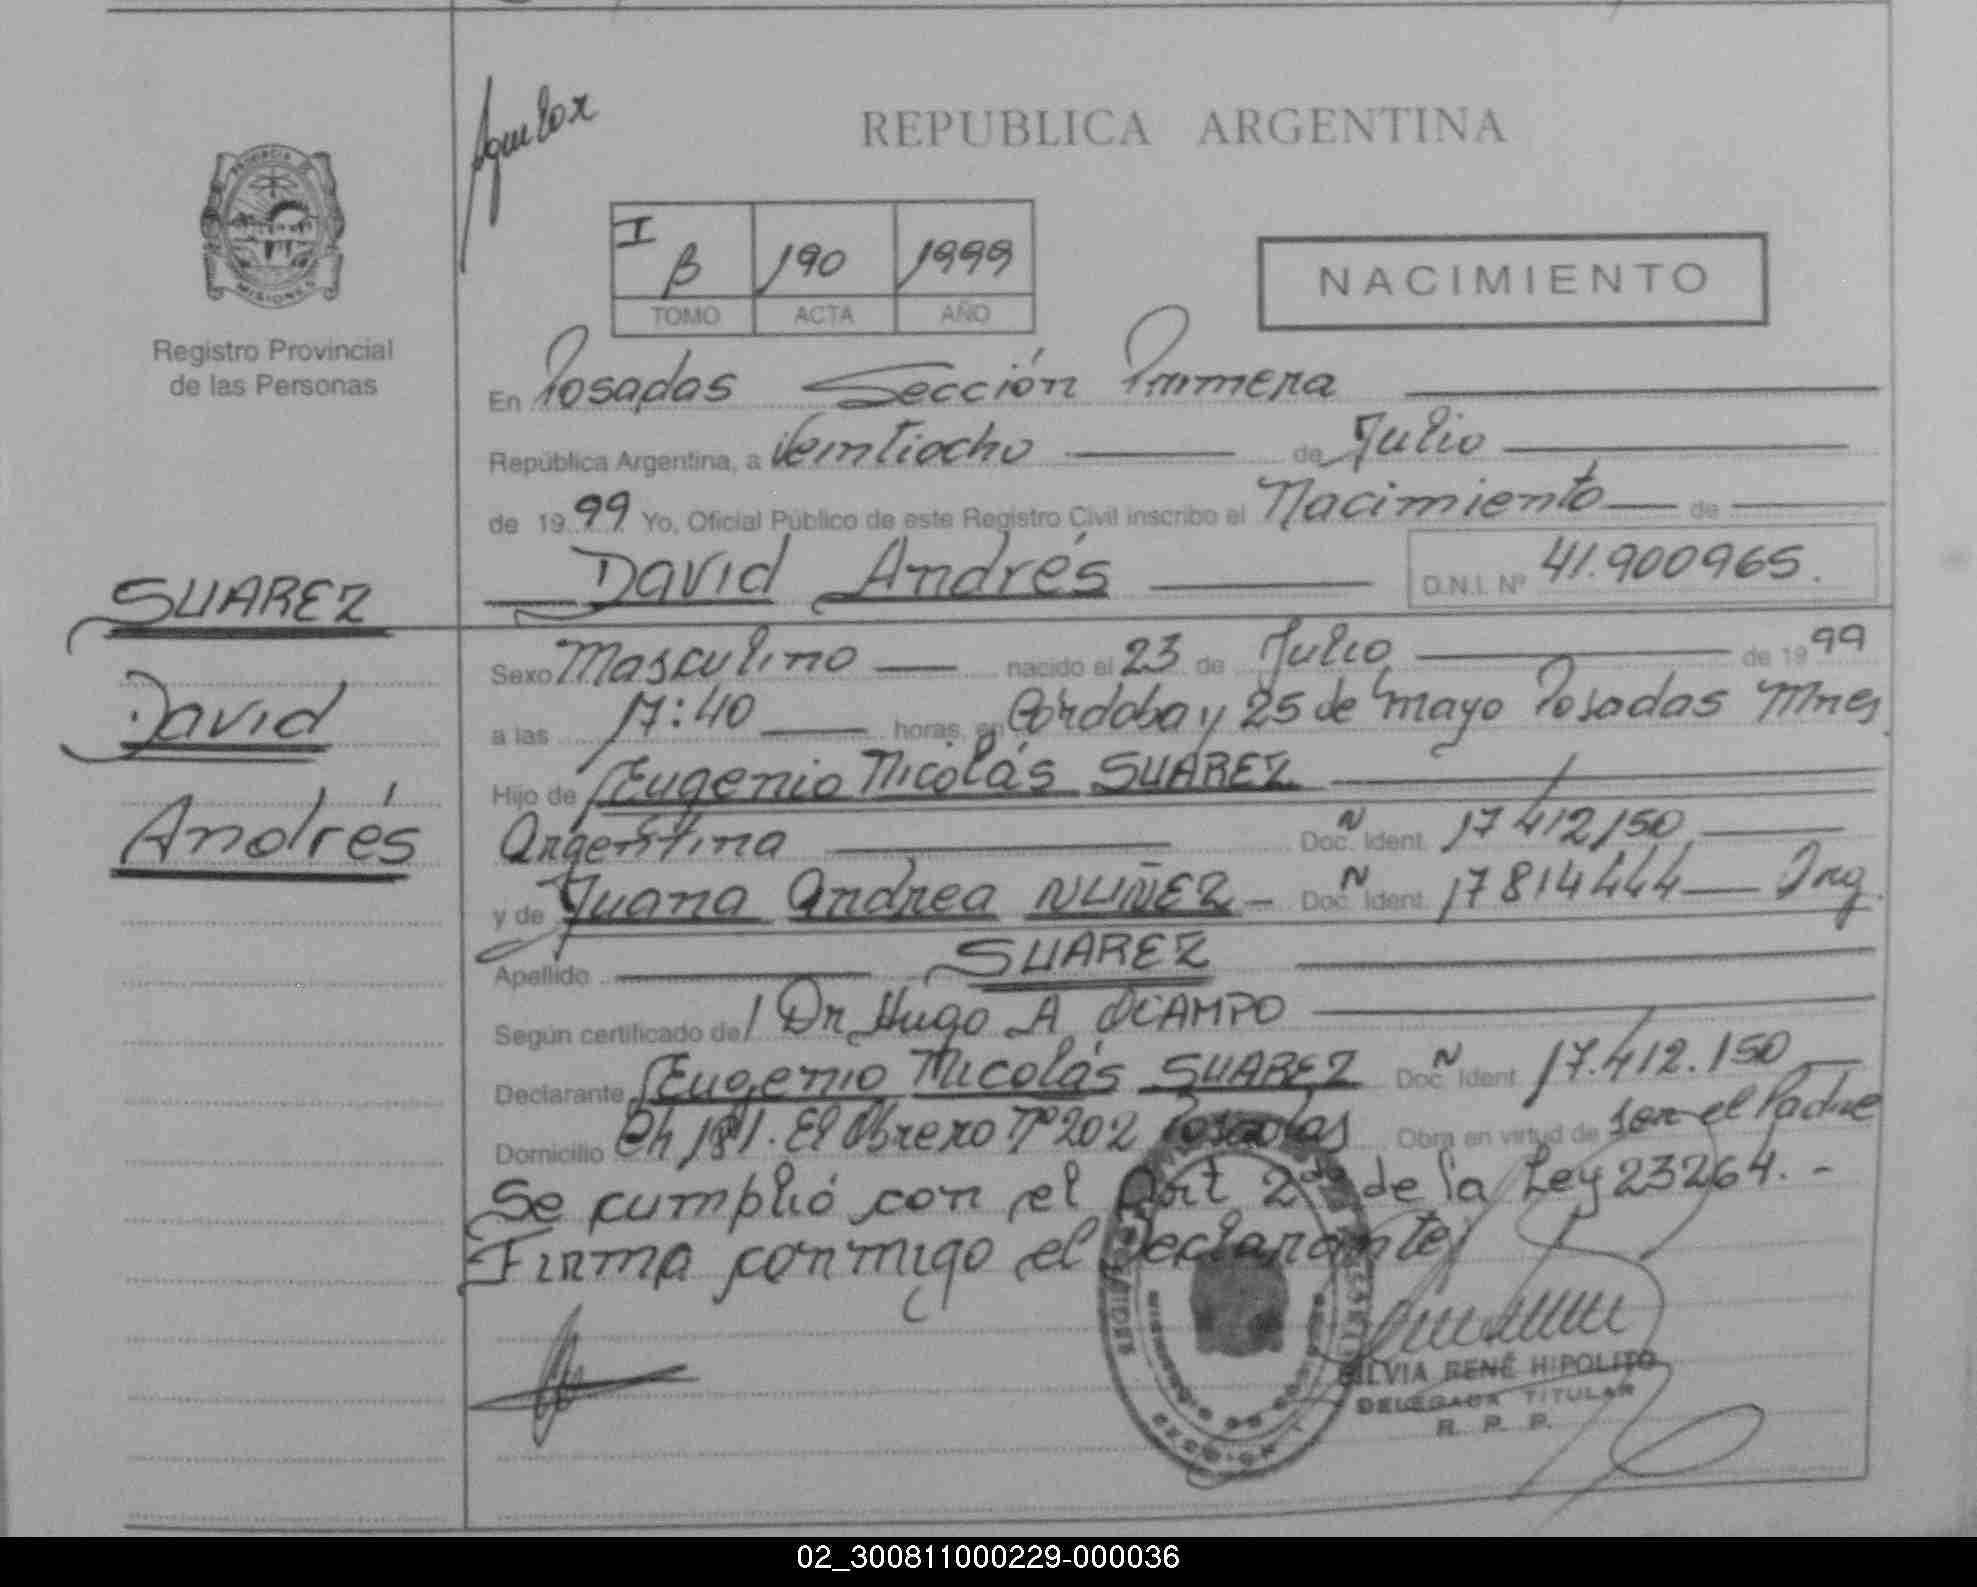 Aguilar
REPUBLICA ARGENTINA
PROVINCIA DE
MISIONES
Registro Provincial
de las Personas
I
B 190 1999
TOMO ACTA AÑO
NACIMIENTO
En Posadas Sección Primera
República Argentina, a Veintiocho de Julio
de 1999 Yo, Oficial Público de este Registro Civil inscribo el Nacimiento de
David Andrés D.N.I. Nº 41.900965.
SUAREZ
David
Andrés
Sexo Masculino nacido el 23 de Julio de 1999
a las 17:40 horas, en Córdoba y 25 de mayo Posadas Mnes
Hijo de Eugenio Nicolás SUAREZ
Argentina Doc. Ident. 17412150
y de Juana Andrea NUÑEZ - Doc. Ident. 17814444 Arg.
Apellido SUAREZ
Según certificado de Dr Hugo A OCAMPO
Declarante Eugenio Nicolás SUAREZ Doc. Ident. 17.412.150
Domicilio Ch 181. El Obrero Nº 202 Posadas Obra en virtud de ser el Padre
Se cumplió con el Art 2do de la Ley 23264. -
Firma conmigo el Declarante
SILVIA RENÉ HIPOLITO
DELEGADA TITULAR
R. P. P.
02_300811000229-000036